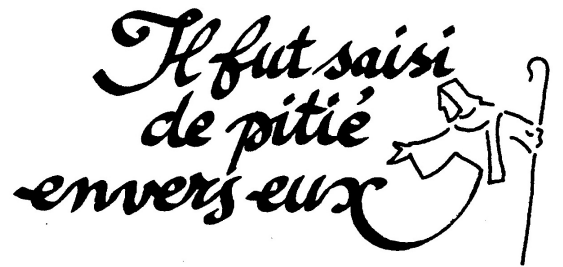 Il fut saisi
de pitié
envers eux